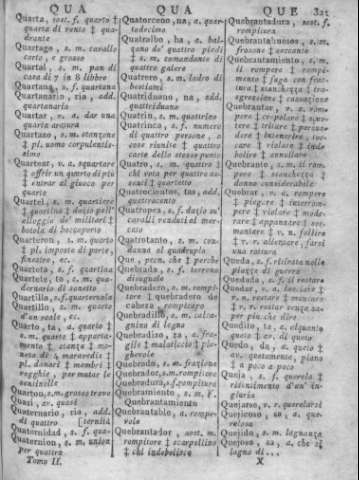 QUA QUA QUE 321
Quarta, sost. f. quarto ‡
quarta di vento ‡ qua-
drante
Quartago, s. m. cavallo
corto, e grosso
Quartal, s. m. pan di
casa di 7 in 8 libbre
Quartana, s. f. quartana
Quartanario, ria, add.
quartanario
Quartar, v. a. dar una
quarta
Quartazo, s. m.
‡ pl. uomo corpulentis-
simo
Quartear, v. a. squartare
‡ offrir un quarto di più
‡ entrar al giuoco per
quarto
Quartel, s. m. quartiere
‡ dazio pell'
alloggio de' militari ‡
botola di boccaporto
Quarteron, s. m. quarto
‡ pl. imposta di porte,
finestre, ec.
Quarteta, s. f. quartina
Quarteto, s. m. qua-
dernario di sonetto
Quartilla, s. f.
Quartillo, s. m. quarto
d'un reale, ec.
Quarto, ta, a. quarto ‡
s. m. quarto ‡ apparta-
mento ‡ stanza ‡ mo-
neta di 4 maravedis ‡
pl. danari ‡ membri ‡
per mutar le
sentinelle
Quarton, s. m. grosso trave
Quasi, av. quasi
Quaternario, ria, add.
di quattro [ternità
Quaternidad, s. f. qua-
Quaternion, s. m. unione
per quattro
Tomo II.
Quatorceno, na, a. quar-
todecimo
Quatralbo, ba, a. bal-
zano de' quattro piedi
‡ s. m. comandante di
quattro galere
Quatrero, s. m. ladro di
bestiami
Quatriduano, na, add.
quatriduano
Quatrin, s. m. quattrino
Quatrinca, s. f. numero
di quattro persone, o
cose riunite ‡ quattro
carte dello stesso punto
Quatro, s. m. quattro ‡
chi vota per quattro as-
senti ‡ quartetto
Quatrocientos, tas, add.
quattrocento
Quatropea, s. f. dazio su'
cavalli venduti al mer-
cato
Quatrotanto, s. m. con-
danna al quadruplo
Que, pron. che ‡ perchè
Quebrada, s. f. terreno
disuguale
Quebradero, s. m. rompi-
tore ‡ quebradero de
cabeza, rompicapo
Quebradillo, s. m. calca-
gnino di legno
Quebradizo, za, a. fra-
gile ‡ malaticcio ‡ pie-
ghevole
Quebrado, s. m. frazione
Quebrador, s. m. rompitore
Quebradura, s. f. rompitura
Quebramiento, s. m. V.
Quebrantamiento
Quebrantable, a. rompe-
vole
Quebrantador, sost. m.
rompitore ‡ scarpellino
‡ chi indebolisce
Quebrantadura, sost. f.
rompitura
Quebrantahuesos, s. m.
frosone ‡ seccante
Quebrantamiento, s. m.
il rompere ‡ rompi-
mento ‡ fuga con frat-
tura ‡ stanchezza ‡ tra-
sgressione ‡ cassazione
Quebrantar, v. a. rom-
pere ‡ crepolare ‡
tere ‡ tritare ‡ persua-
dere ‡ incenerire, toc-
care ‡ violare ‡ inde-
bolire ‡ annullare
Quebranto, s. m. il rom-
pere ‡ stanchezza ‡
danno considerabile
Quebrar, v. a. rompere
‡ piegare ‡ interrom-
pere ‡ violare ‡ mode-
rare ‡ appannare ‡ sor-
montare ‡ v. n. fallire
‡ v. r. allentare, farsi
una rottura
Queda, s. f. ritirata nelle
piazze di guerra
Quedada, s. f. il restare
Quedar, v. a. lasciare ‡
v. n. restare ‡ mancare
‡ v. r. restar senza sa-
per più che dire
Quedito, ta, a. alquanto
queto ‡ av. di queto
Quedo, da, a. queto ‡
av. quetamente, piano
‡ a poco a poco
Queja, s. f. querela ‡
risentimento d'un' in-
giuria
Quejarse, v. r. querelarsi
Quejicoso, sa, a. que-
rulo
Quejido, s. m. lagnanza
Quejoso, sa, a. che si
lagna di . . .
X